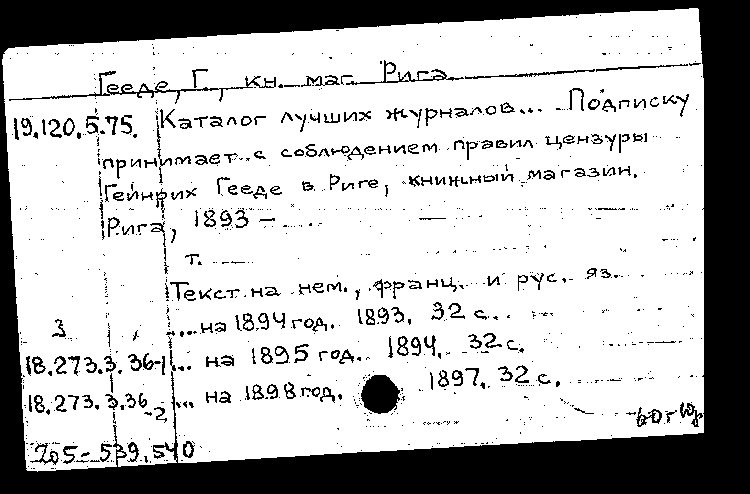 Гееде, Г., кн. маг. Рига.
19.120.5.75. Каталог лучших журналов... Подписку
принимает с соблюдением правил цензуры
Гейнрих Гееде в Риге, книжный магазин.
Рига, 1893 – ....
т.
Текст на нем., франц. и рус. яз.
3 ... на 1894 год. 1893. 32 с.
18.273.3.36-1 ... на 1895 год. 1894. 32 с.
18.273.3.36-2 ... на 1898 год. 1897. 32 с.
205-539.540